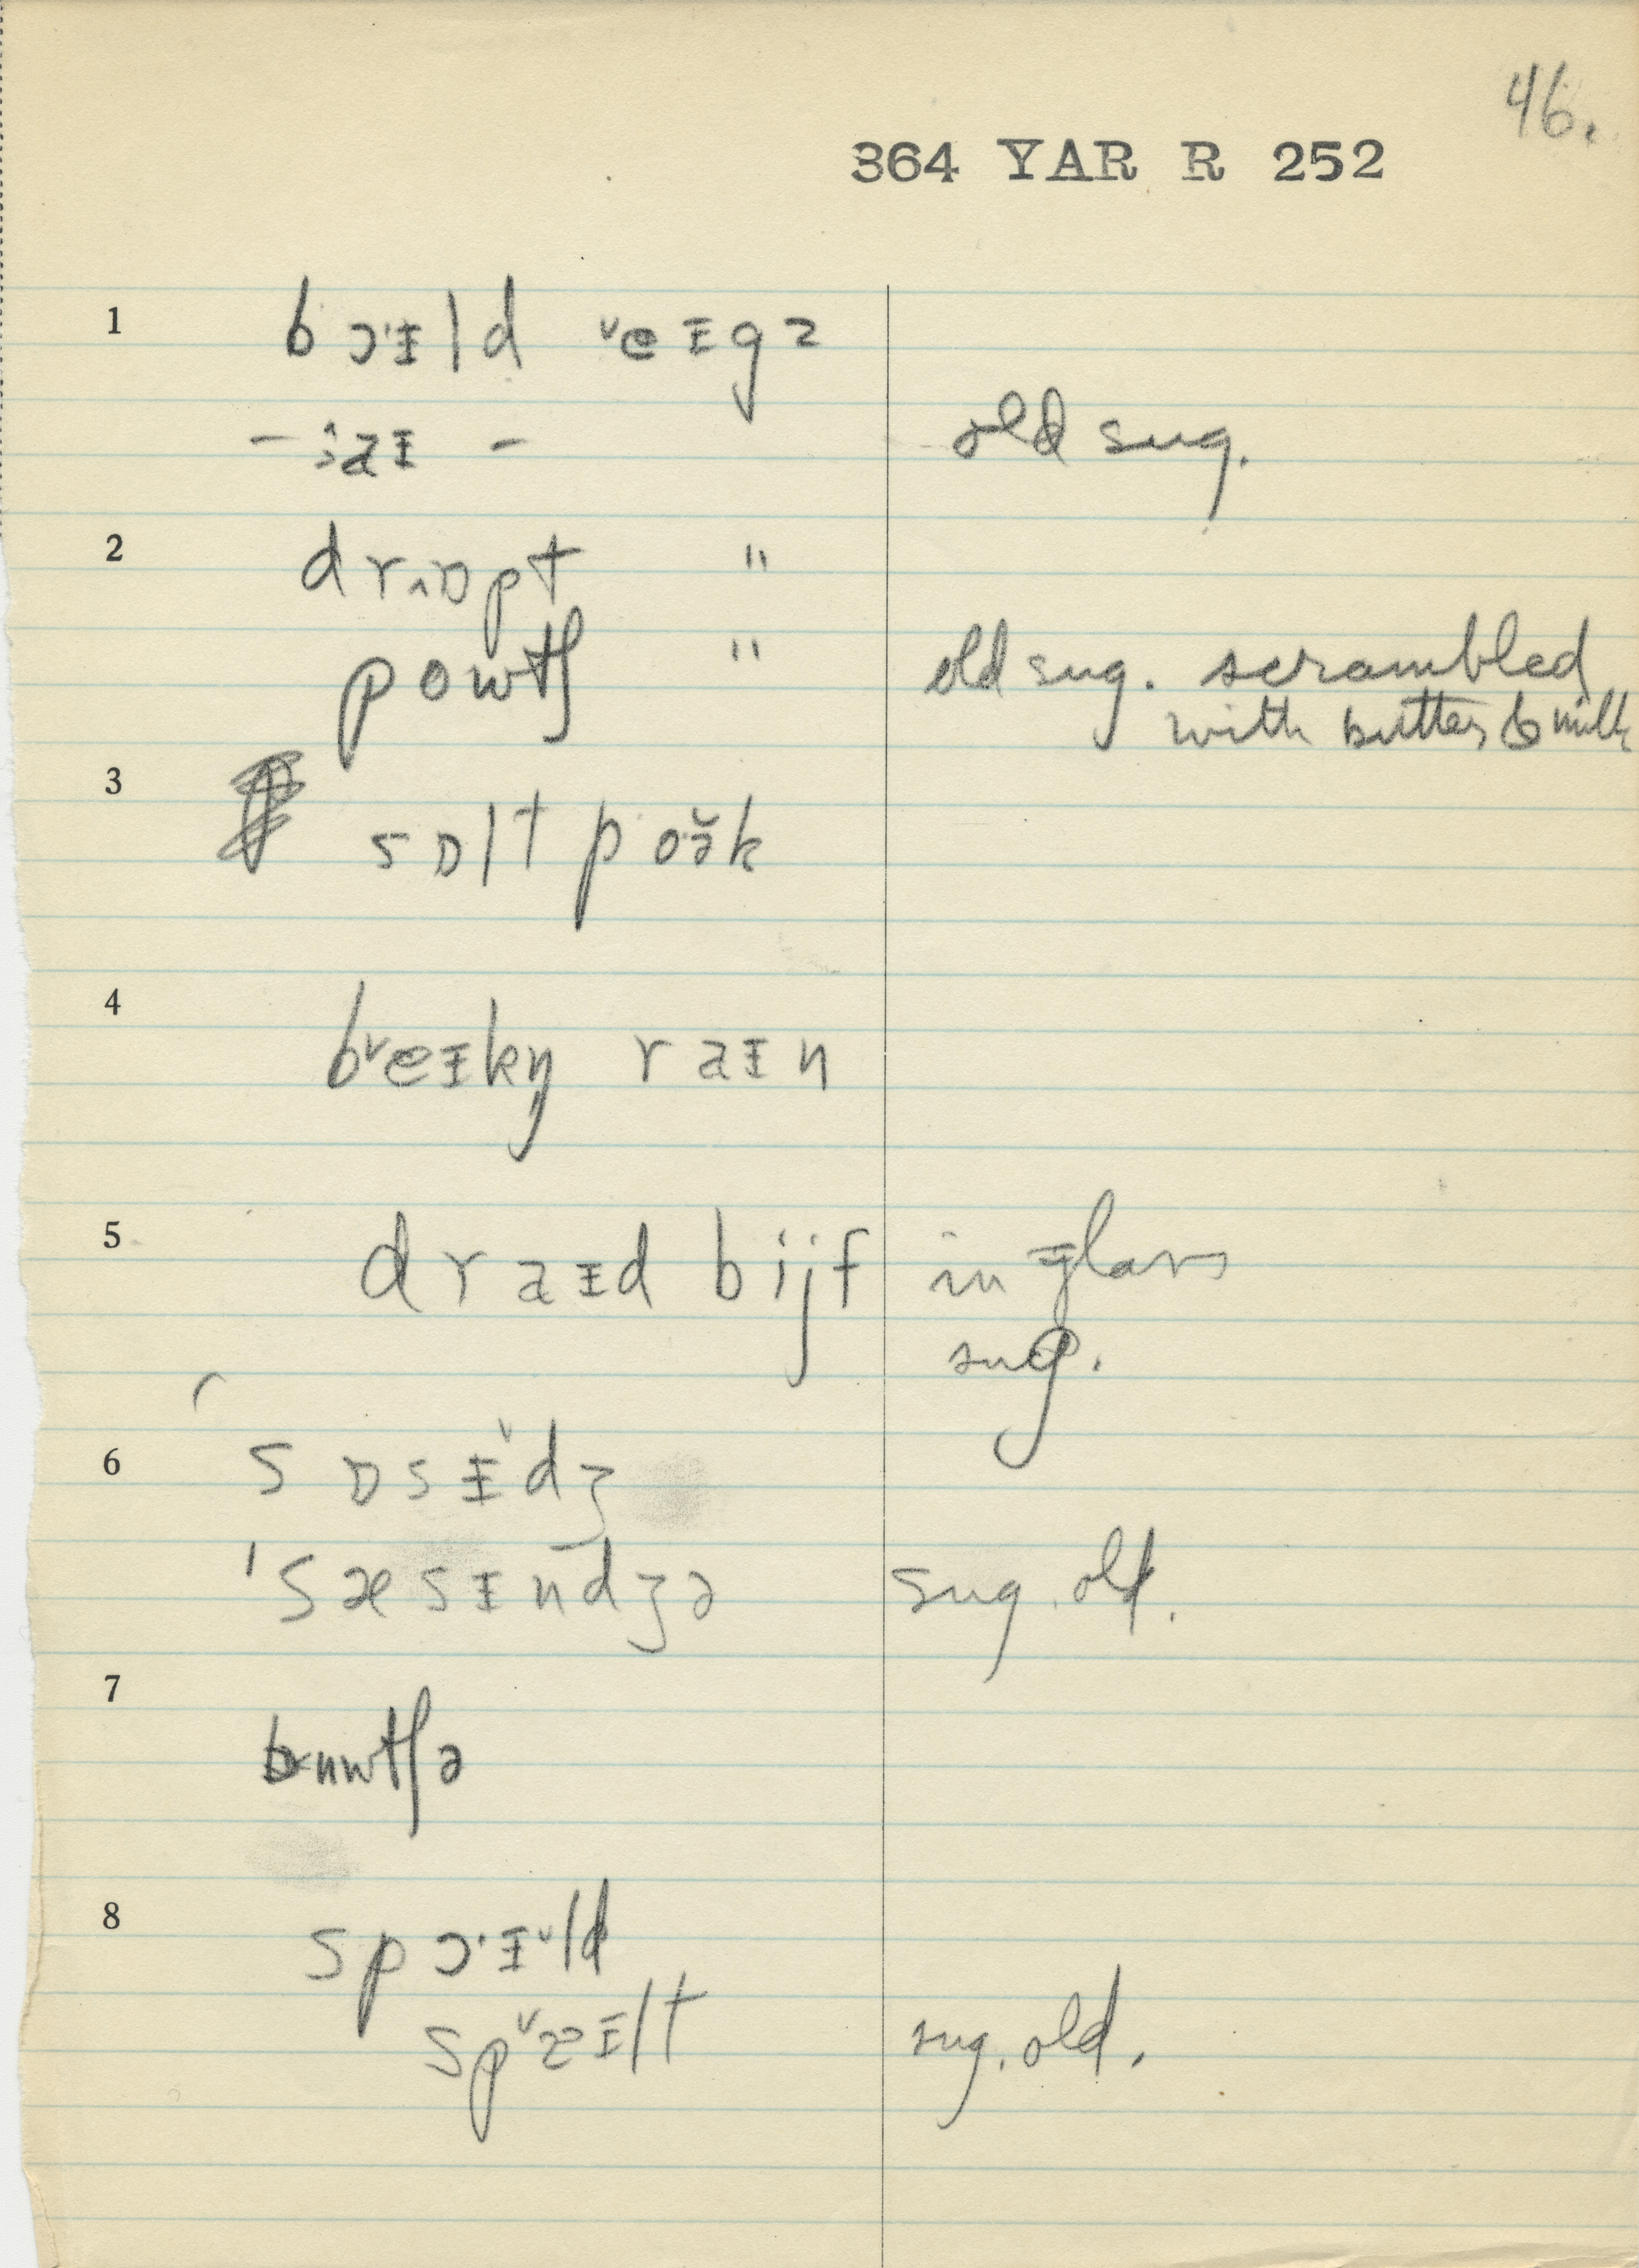 46.
364 YAR R 252
1 bɔ·ɪld ˅eɪgz
- ·aɪ - old sug.
2 drˬɒpt "
powtʃ " old sug. scrambled with butter & milk
3 sɒlt poə̆k
4 b˅eɪkŋ raɪn
5 draɪd bijf in glass
sug.
6 sɒsɪ˅dʒ
'sæsɪndʒə sug. old.
7 bʊwtʃə
8 spɔ·ɪ˅ld
sp˅ɜɪlt sug. old.